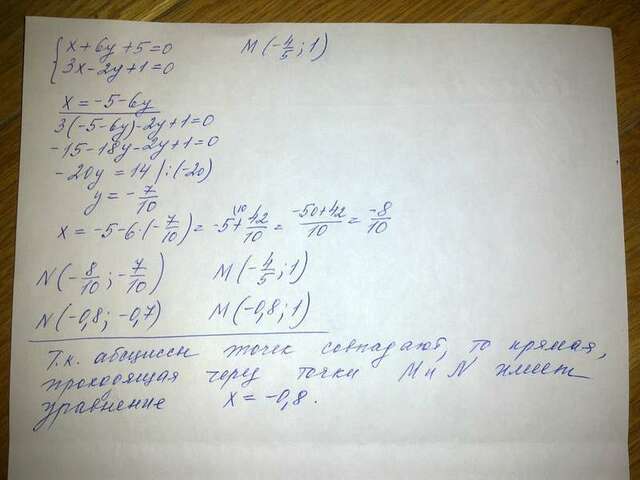 {x+6y+5=0   M(-4/5; 1)
{3x-2y+1=0
x=-5-6y
3(-5-6y)-2y+1=0
-15-18y-2y+1=0
-20y=14 /:(-20)
y=-7/10
x=-5-6·(-7/10)=-5^(10+42/10=(-50+42)/10=-8/10
N(-8/10; -7/10)   M(-4/5; 1)
N(-0,8; -0,7)   M(-0,8; 1)
Т.к. абциссы точек совпадают, то прямая,
проходящая через точки M и N имеет
уравнение   x=-0,8.